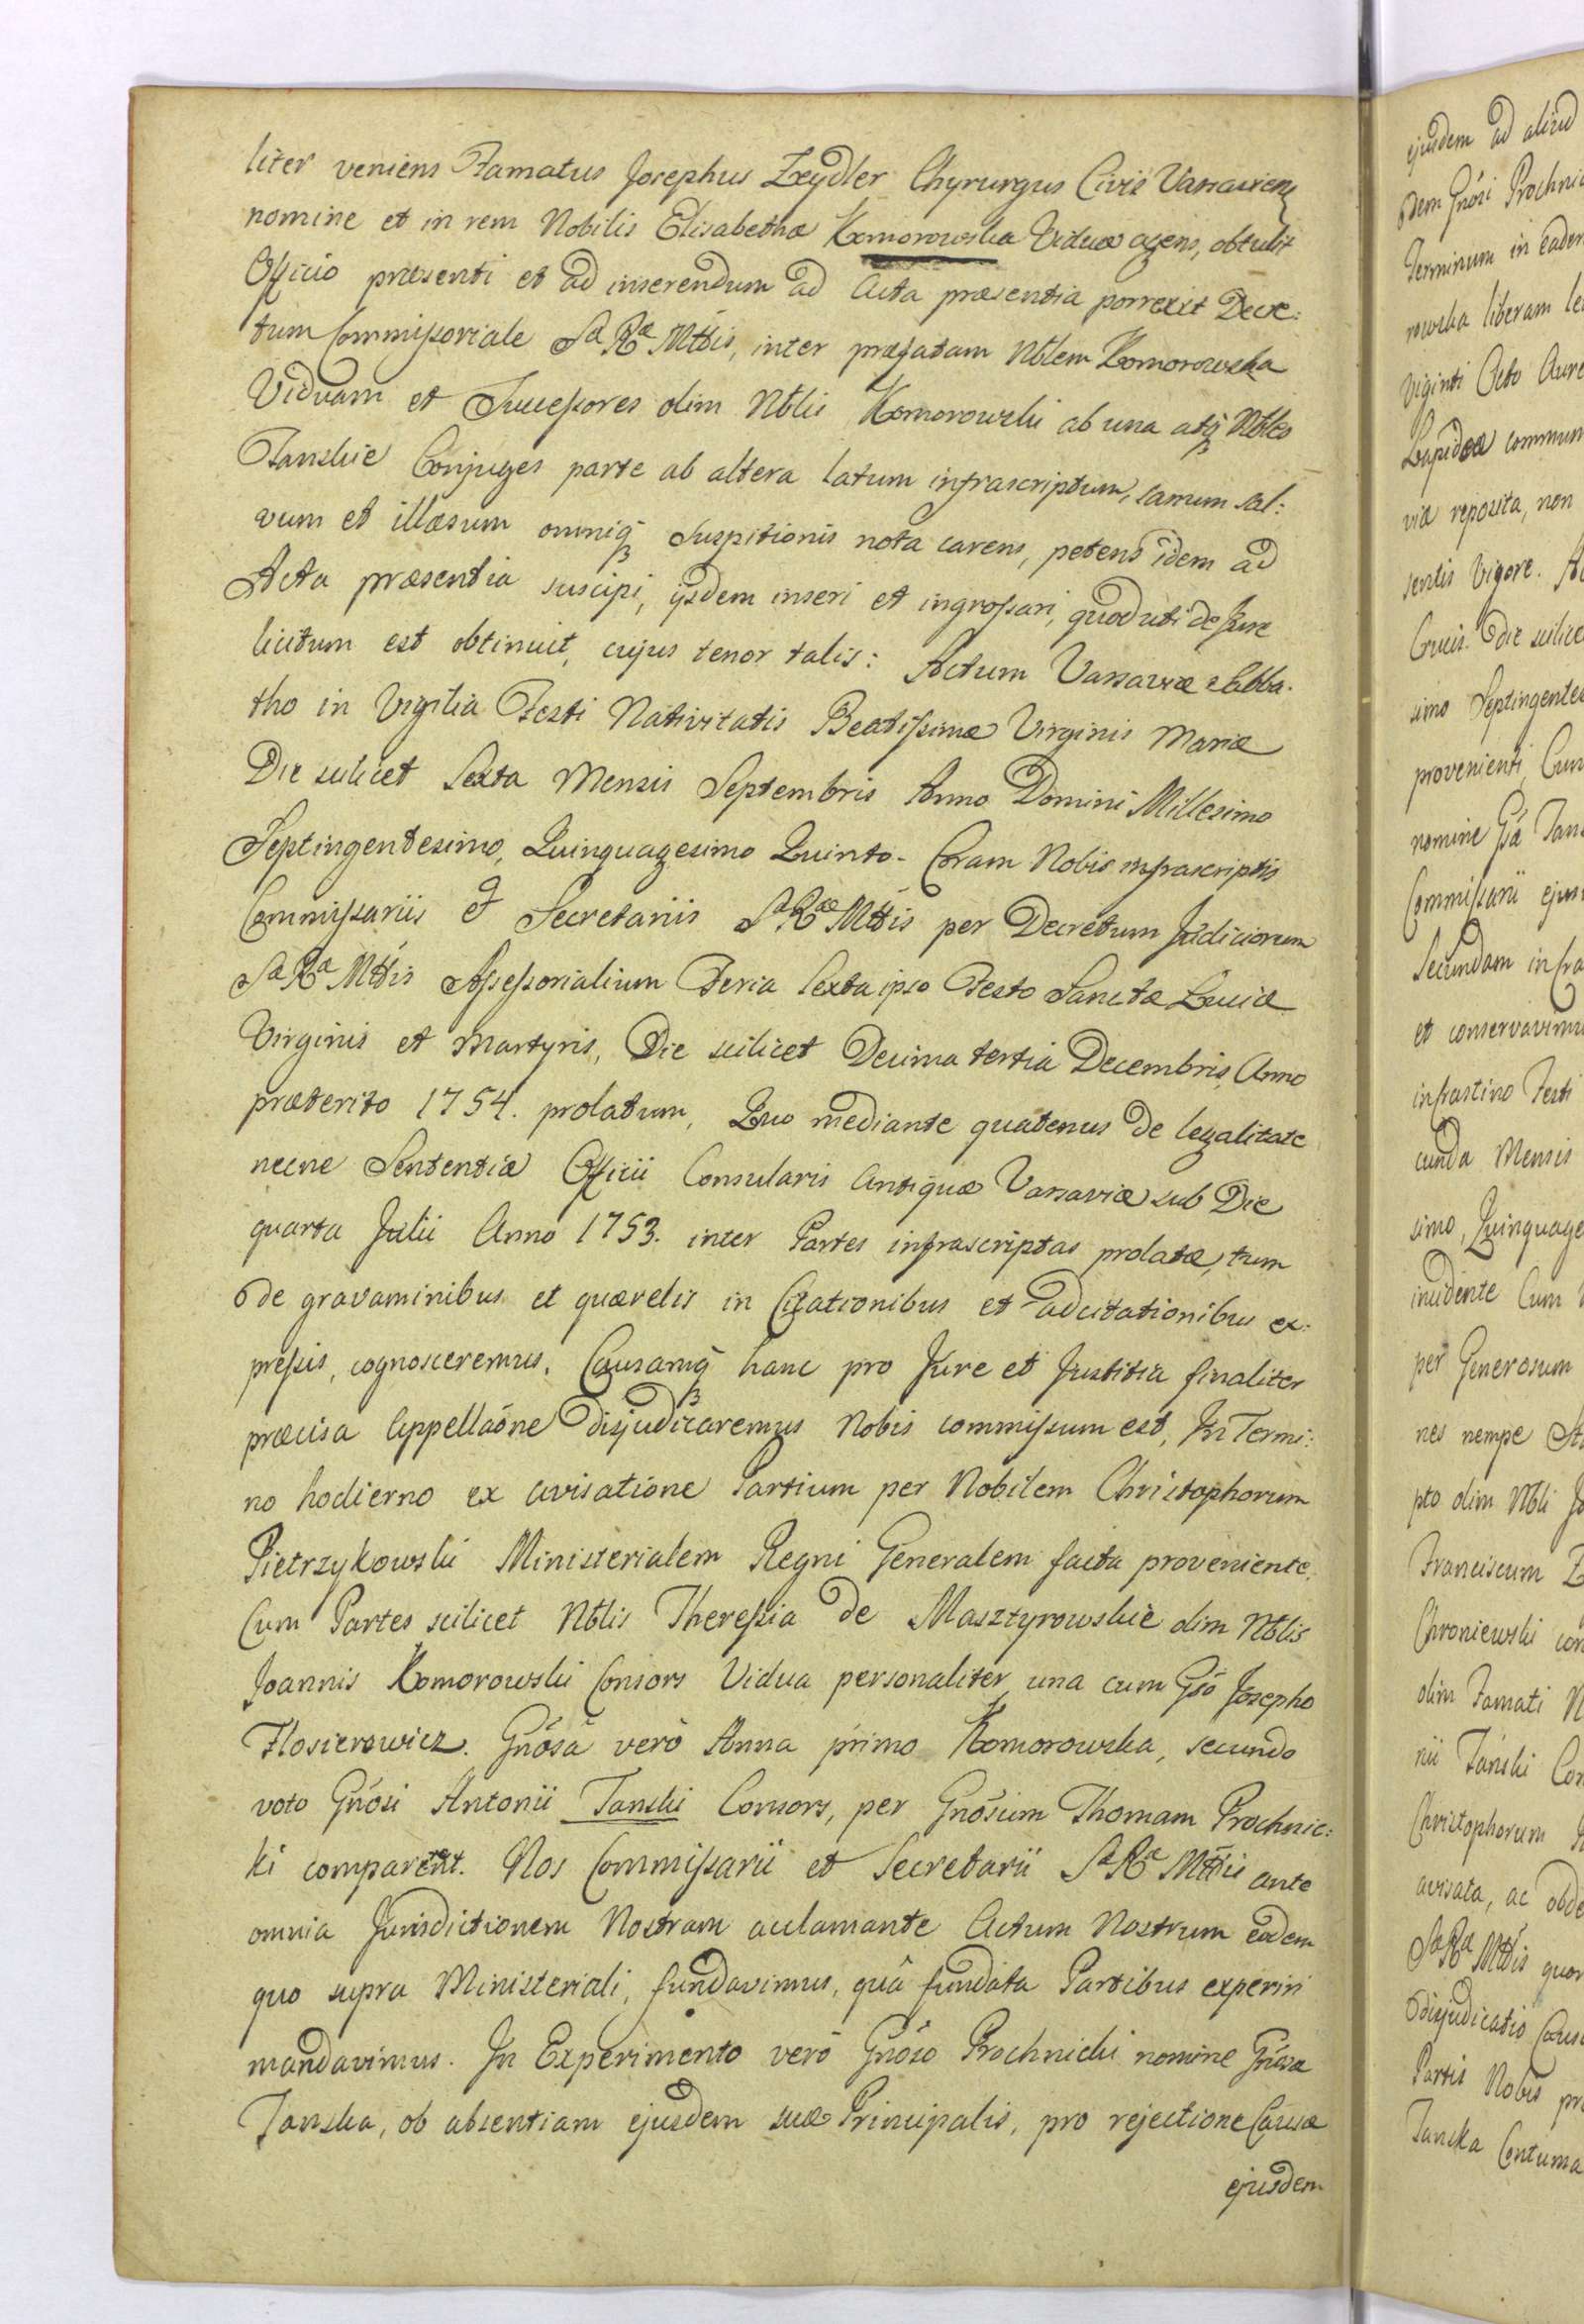 liter veniens Famatus Josephus Zeydler Chyrurgus Civis Varsaviens
nomine et in rem Nobilis Elisabethæ Komorowska Viduæ agens, obtulit
Officio præsenti et ad inserendum ad Acta præsentia porrexit Decre:
tum Commissoriale Sæ Ræ Mttis, inter præfatam Nblem Komorowska
Viduam et Successores olim Nblis Komorowski ab una atq3 Nbles
Tanskie Conjuges parte ab altera latum infrascriptum, sanum sal:
vum et illæsum omniq3 Suspitionis nota carens, petens idem ad
Acta præsentia suscipi, ijsdem inseri et ingrossari, quod uti de Jure
licitum est obtinuit, cujus tenor talis: Actum Varsaviæ Sabba:
tho in Vigilia Festi Nativitatis Beatissimæ Virginis Mariæ
Die scilicet Sexta Mensis Septembris Anno Domini Millesimo
Septingentesimo, Quinquagesimo Quinto. Coram Nobis infrascriptis
Commissariis et Secretariis Sæ Ræ Mttis per Decretum Judiciorum
Sæ Ræ Mttis Assessorialium Feria Sexta ipso Festo Sanctæ Luciæ
Virginis et Martyris, Die scilicet Decima tertia Decembris, Anno
præterito 1754. prolatum, Quo mediante quatenus de legalitate
necne Sententiæ Officii Consularis Antiquæ Varsaviæ sub Die
quarta Julii Anno 1753. inter Partes infrascriptas prolatæ, tum
de gravaminibus et quærelis in Citationibus et adcitationibus ex:
pressis, cognosceremus, Causamq3 hanc pro Jure et Justitia finaliter
præcisa Appellaõne disjudicaremus Nobis commissum est, In Termi:
no hodierno ex avisatione Partium per Nobilem Christophorum
Pietrzykowski Ministerialem Regni Generalem facta proveniente,
Cum Partes scilicet Nblis Theressia de Masztyrowskie olim Nblis
Joannis Komorowski Consors Vidua personaliter una cum Gõso Josepho
Flosierowicz. Gñosa verò Anna primo Komorowska, secundo
voto Gñosi Antonii Tanski Consors, per Gñosum Thomam Prochnic:
ki comparent. Nos Commissarii et Secretarii Sæ Ræ Mttis ante
omnia Jurisdictionem Nostram aclamante Actum Nostrum eodem
quo supra Ministeriali, fundavimus, quâ fundata Partibus experiri
mandavimus. In Experimento verò Gñoso Prochnicki nomine Gñosæ
Tanska, ob absentiam ejusdem suæ Principalis, pro rejectione Causæ
ejusdem
ejusdem ad aliud
dem Gñosi Prochnic
Terminum in eadem
rowska liberam le
Viginti Octo Aure
Lapideæ commun
via reposita, non
sentis Vigore. A
Crucis. Die scilice
simo Septingentes
provenienti, Cum
nomine Gsæ Tans
Commissarii ejus
Secundam infra
et conservavimu
infrastino Festi
cunda Mensis
simo, Quinquage
incidente Cum
per Generosum
nes nempe
pto olim Nbli
Franciscum
Chroniewski con
olim Famati N
nii Tański Con
Christophorum
avisata, ac obde
Sæ Ræ Mttis quor
disjudicatio Caus
Partis Nobis pr
Tanska Contuma